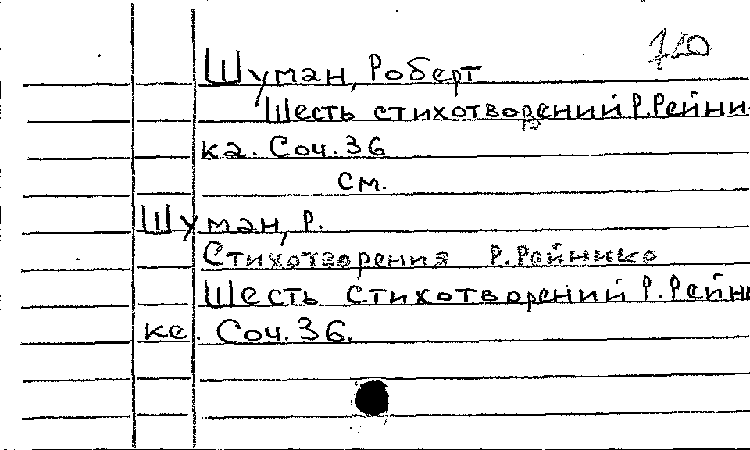 710
Шуман, Роберт
Шесть стихотворений Р.Рейни-
ка. Соч. 36
см.
Шуман, Р.
Стихотворения Р. Рейнико
Шесть стихотворений Р. Рейн
ке. Соч. 36.